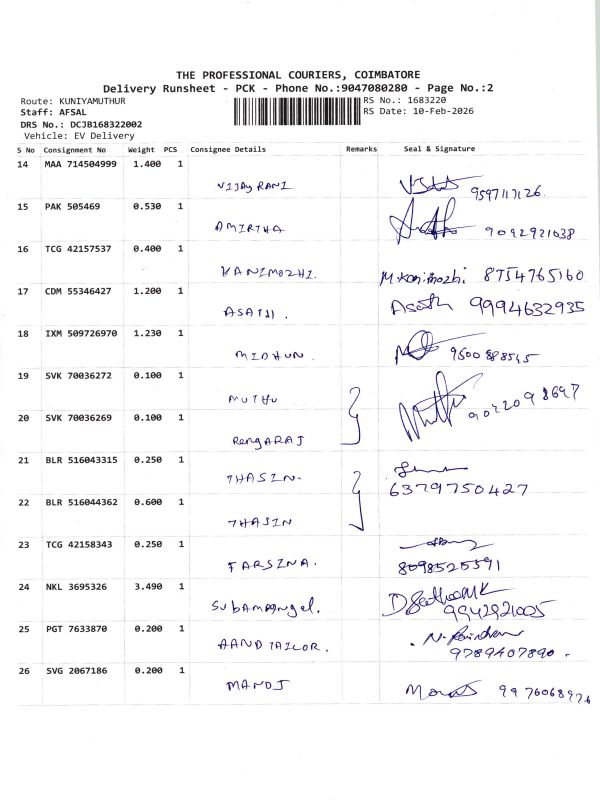 THE PROFESSIONAL COURIERS, COIMBATORE
Delivery Runsheet - PCK - Phone No.:9047080280 - Page No.:2
Route: KUNIYAMUTHUR
RS No.: 1683220
Staff: AFSAL
RS Date: 10-Feb-2026
DRS No.: DCJB168322002
Vehicle: EV Delivery
S No Consignment No Weight PCS Consignee Details Remarks Seal & Signature
14 MAA 714504999 1.400 1
VIJAY RANI 9597117126.
15 PAK 505469 0.530 1
AMIRTHA 9092921038
16 TCG 42157537 0.400 1
KANIMOZHI. M.Kanimozhi 8754765160
17 CDM 55346427 1.200 1
ASATH. Asath 9994632935
18 IXM 509726970 1.230 1
MIDHUN. 9600888545
19 SVK 70036272 0.100 1
MUTHU
20 SVK 70036269 0.100 1
RengARAJ
21 BLR 516043315 0.250 1
THASIN. 6379750427
22 BLR 516044362 0.600 1
THASIN
23 TCG 42158343 0.250 1
FARSINA. 8098525591
24 NKL 3695326 3.490 1
9942921005
25 PGT 7633870 0.200 1
AANDTAILOR. 9789407890.
26 SVG 2067186 0.200 1
MANOJ 9976068976